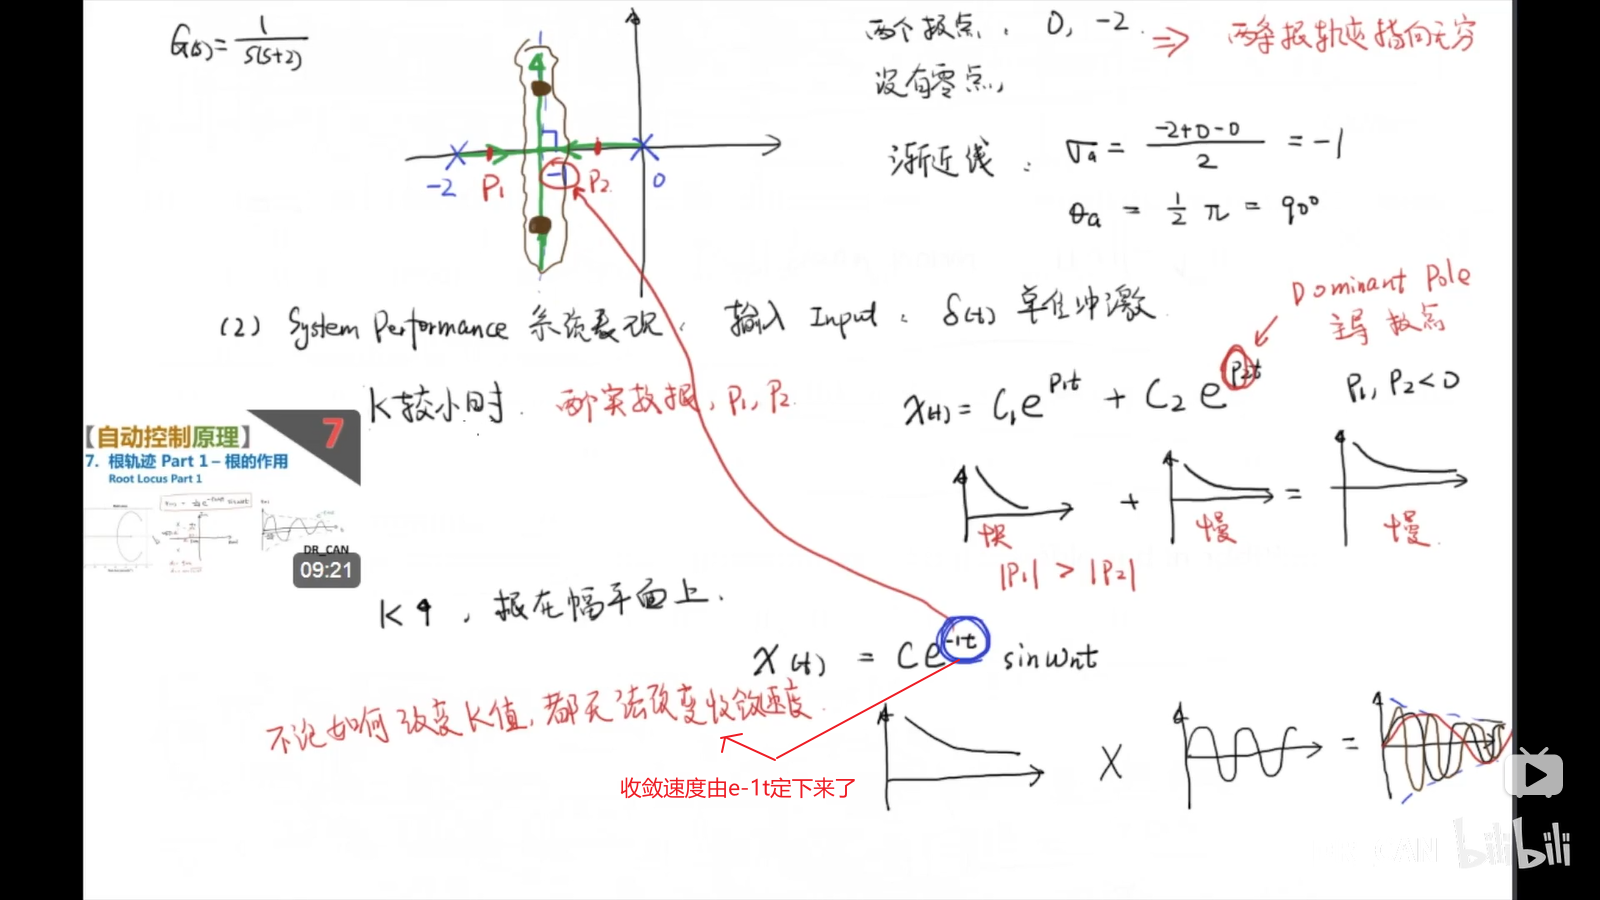 G(s) = 1 / s(s+2)
两个极点: 0, -2. ⇒ 两条根轨迹指向无穷
没有零点,
渐近线: σa = (-2+0-0) / 2 = -1
θa = 1/2 π = 90°
-2 P₁ -1 P₂ 0
(2) System Performance 系统表现. 输入 Input: δ(t) 单位冲激
Dominant Pole
主导极点
K较小时. 两个实数根, P₁, P₂.
x(t) = C₁e^{P₁t} + C₂e^{P₂t}
P₁, P₂ < 0
快 + 慢 = 慢.
|P₁| > |P₂|
【自动控制原理】
7
7. 根轨迹 Part 1 – 根的作用
Root Locus Part 1
DR_CAN
09:21
K↑, 根在复平面上.
x(t) = Ce^{-1t} sinωnt
不论如何改变K值, 都无法改变收敛速度.
收敛速度由e-1t定下来了
X =
AN bilibili